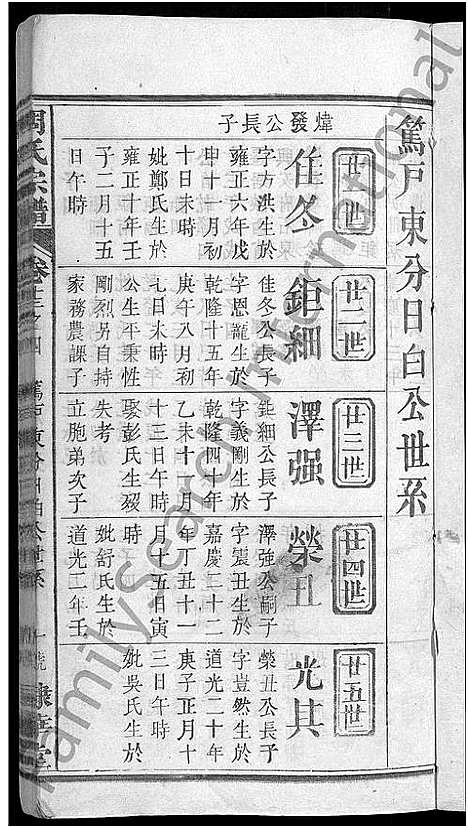 篤戸東分日白公世系
廿一世
煒發公長子
佳冬
字方洪生於
雍正六年戊
申十一月初
十日未時
妣鄭氏生於
雍正十年壬
子二月十五
日午時
廿二世
鉅細
佳冬公長子
字恩龍生於
乾隆十五年
庚午八月初
七日未時
公生平秉性
剛烈另自持
家務農課子
廿三世
澤强
鉅細公長子
字義剛生於
乾隆四十年
乙未十一月
十三日午時
娶彭氏生殁
失考
立胞弟次子
廿四世
榮丑
澤強公嗣子
字震丑生於
嘉慶二十二
年丁丑十一
月十五日寅
時
妣舒氏生於
道光二年壬
廿五世
光其
榮丑公長子
字豈然生於
道光二十年
庚子正月十
三日午時
妣吳氏生於
周氏宗譜
卷
東分日白公世系
FamilySearch International